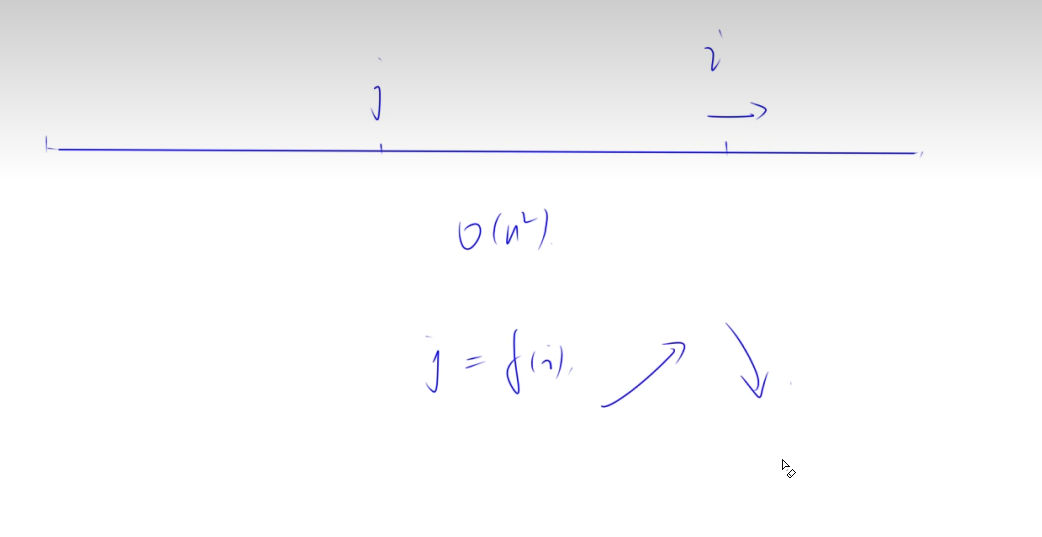 j
i
O(n²)
j = f(i)